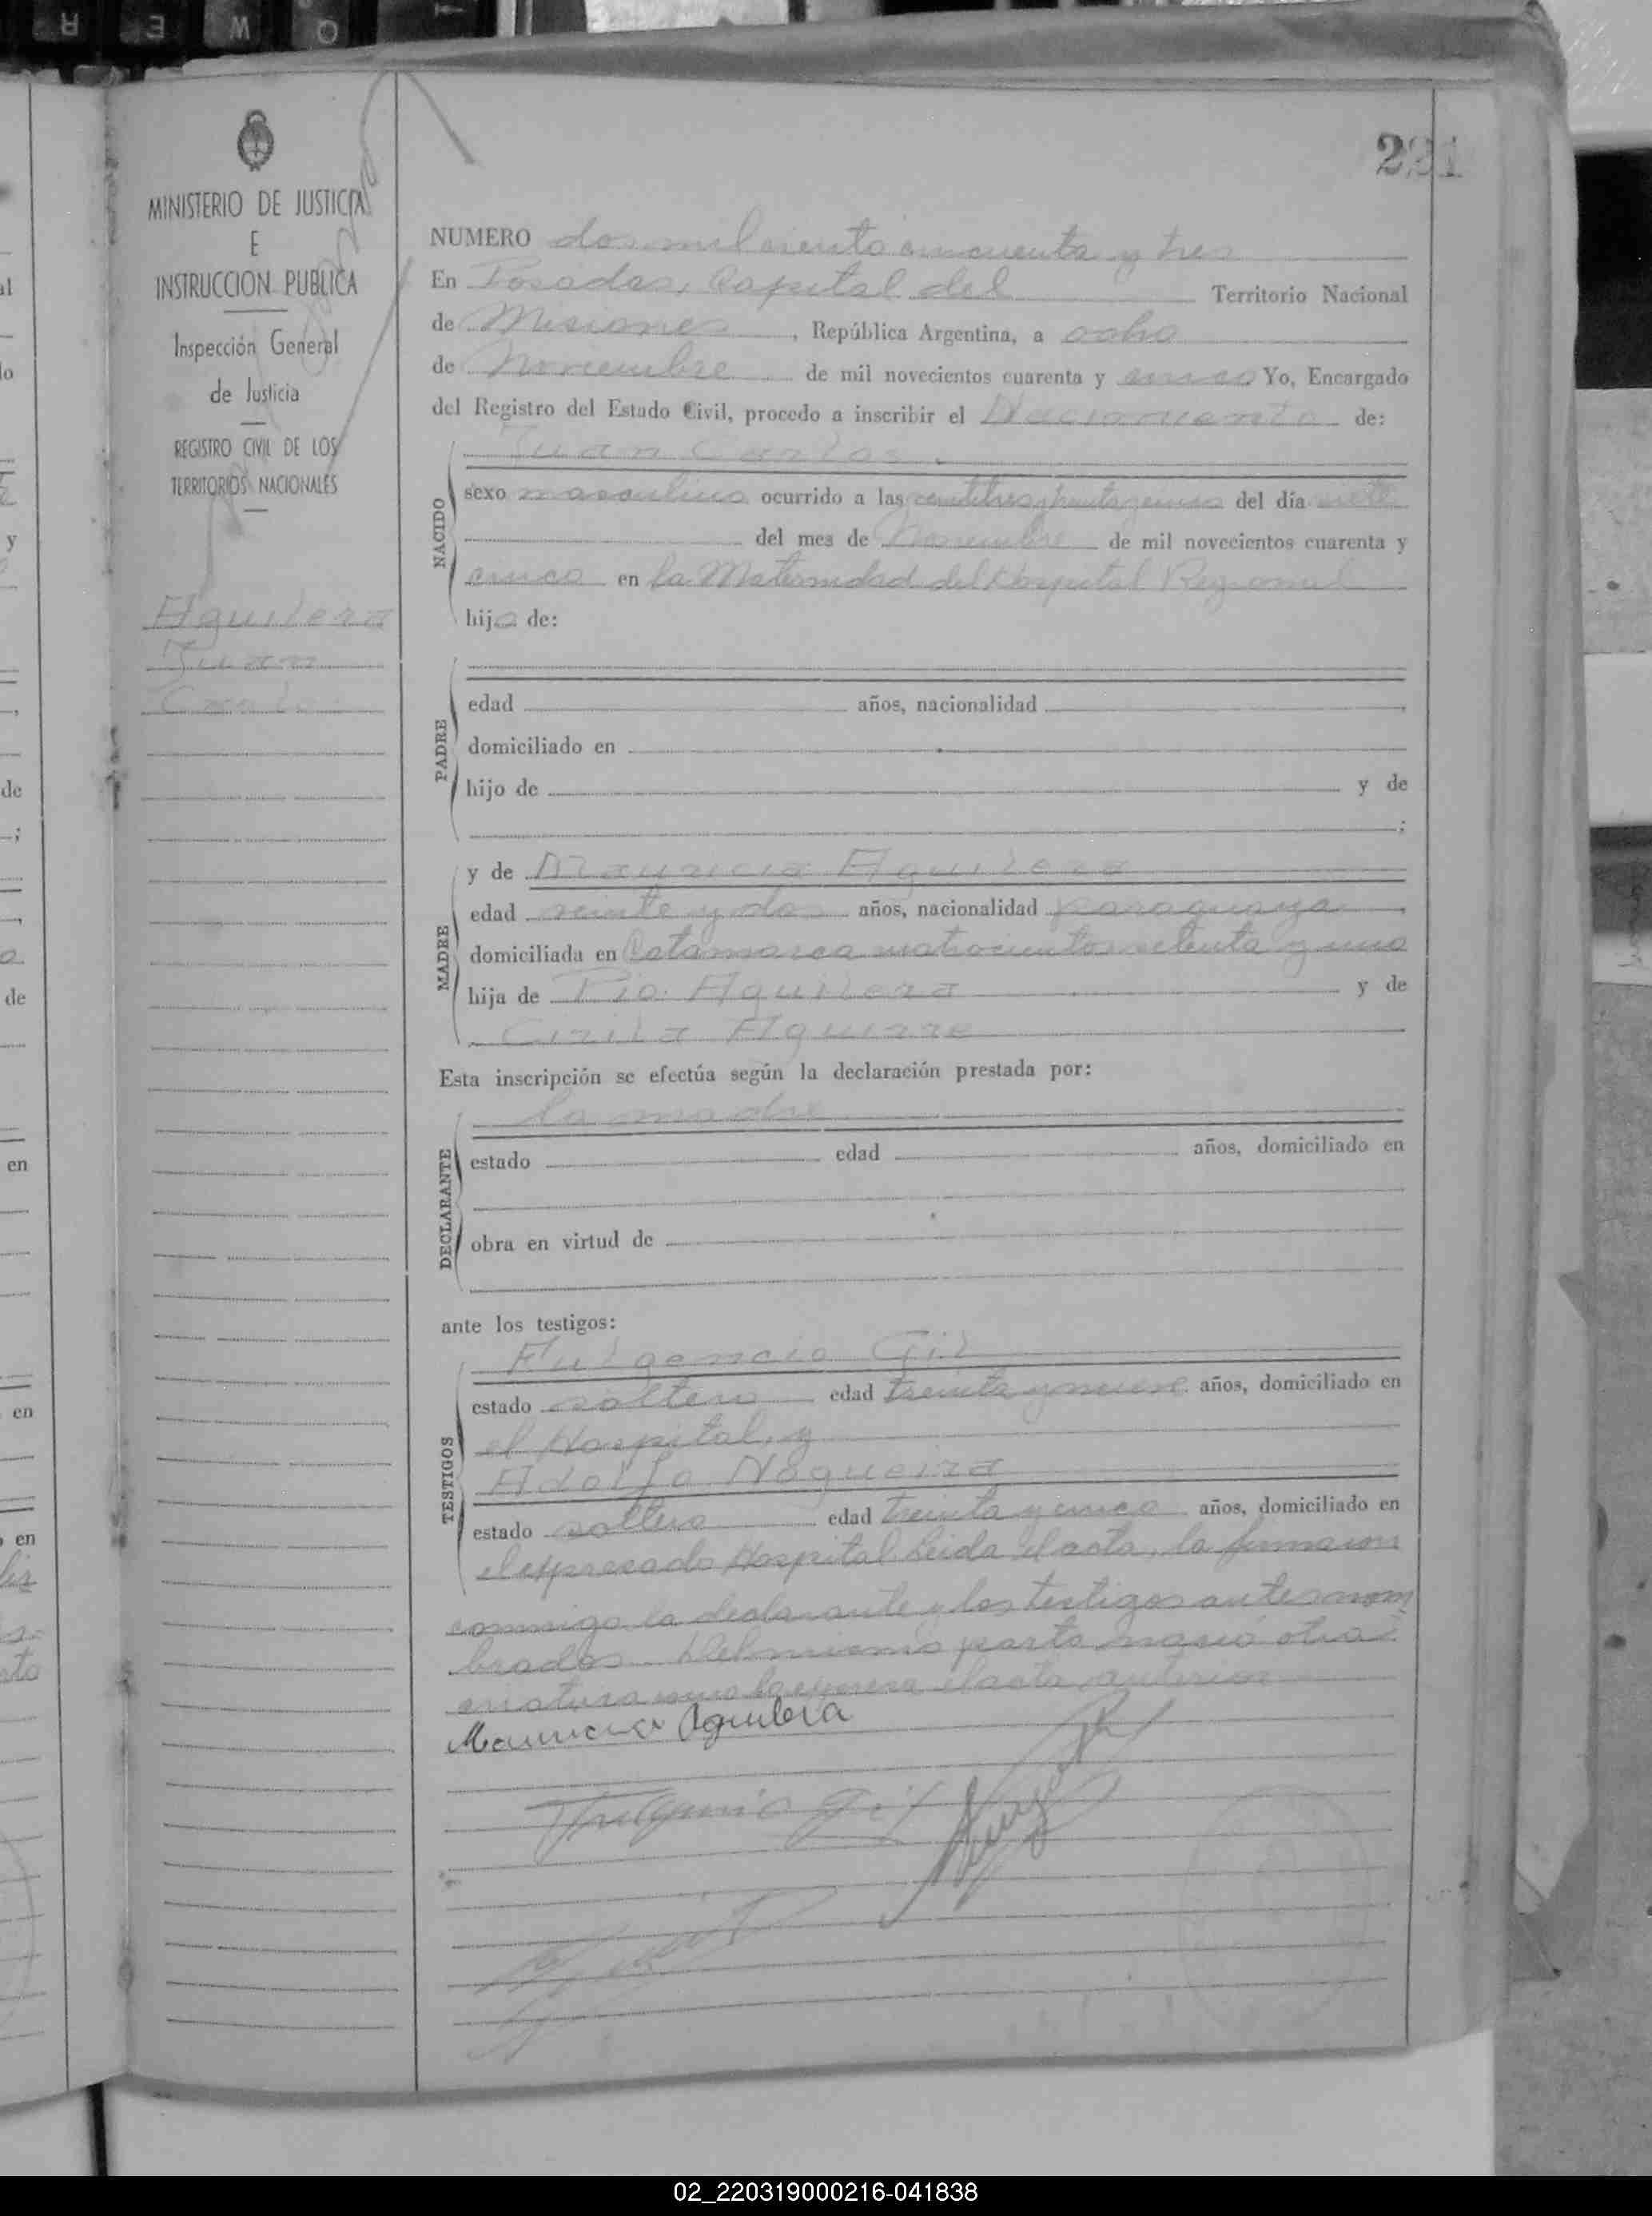 221
MINISTERIO DE JUSTICIA
E
INSTRUCCION PUBLICA
Inspección General
de Justicia
REGISTRO CIVIL DE LOS
TERRITORIOS NACIONALES
Aguilera
Juan
Carlos
NUMERO dos mil ciento cincuenta y tres
En Posadas, Capital del Territorio Nacional
de Misiones, República Argentina, a ocho
de Noviembre de mil novecientos cuarenta y cinco Yo, Encargado
del Registro del Estado Civil, procedo a inscribir el Nacimiento de:
NACIDO
Juan Carlos.
sexo masculino ocurrido a las del día siete
del mes de Noviembre de mil novecientos cuarenta y
cinco en la Maternidad del Hospital Regional
hijo de:
PADRE
edad años, nacionalidad
domiciliado en
hijo de y de
;
MADRE
y de Mauricia Aguilera
edad veinte y dos años, nacionalidad paraguaya
domiciliada en Catamarca cuatrocientos setenta y uno
hija de Pio Aguilera y de
Cirila Aguirre
Esta inscripción se efectúa según la declaración prestada por:
DECLARANTE
la madre
estado edad años, domiciliado en
obra en virtud de
ante los testigos:
TESTIGOS
Fulgencio Gil
estado soltero edad treinta y nueve años, domiciliado en
el Hospital, y
Adolfo Nogueira
estado soltero edad treinta y cinco años, domiciliado en
el expresado Hospital. Leida el acta, la firmaron
conmigo la declarante y los testigos antes nom
brados. Del mismo parto nació otra
criatura como lo expresa el acta anterior
Mauricia Aguilera
Fulgencio Gil
02_220319000216-041838